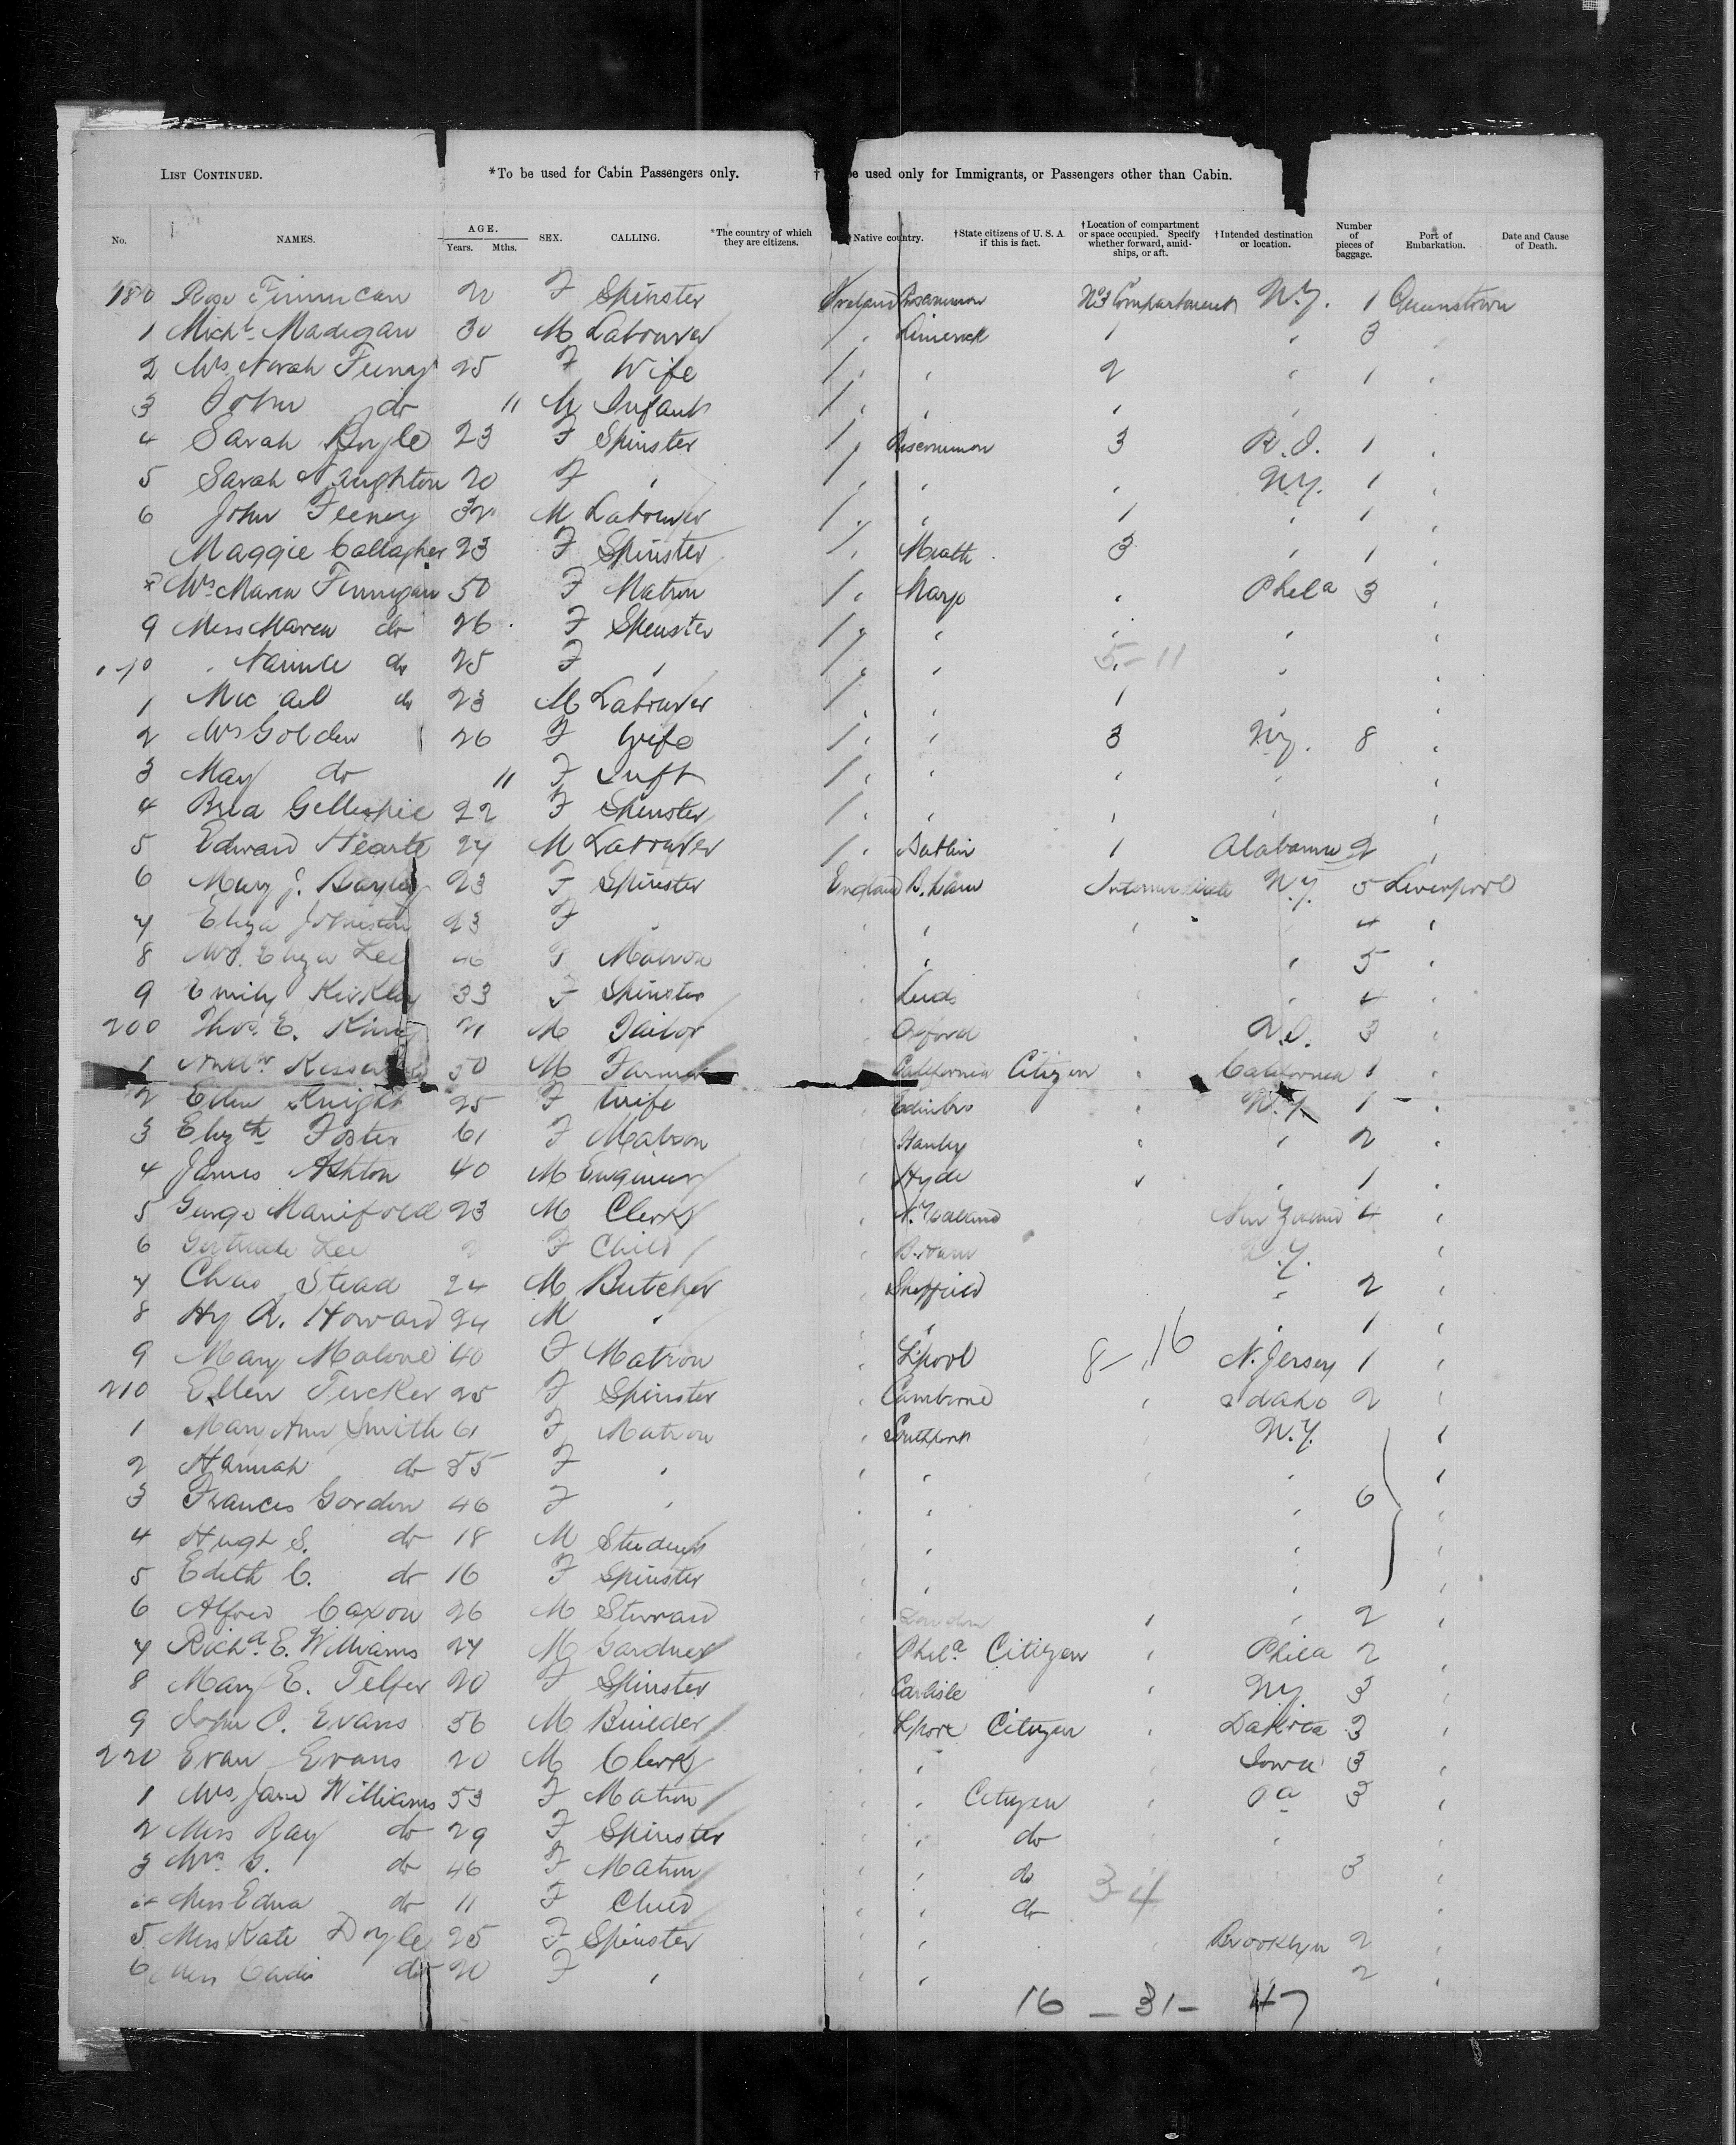 LIST CONTINUED. *To be used for Cabin Passengers only. † be used only for Immigrants, or Passengers other than Cabin.
No. NAMES. AGE. Years. Mths. SEX. CALLING. *The country of which they are citizens. Native country. †State citizens of U. S. A. if this is fact. †Location of compartment or space occupied. Specify whether forward, amid-ships, or aft. †Intended destination or location. Number of pieces of baggage. Port of Embarkation. Date and Cause of Death.
180 Rose Finnucan 20 F Spinster Ireland Roscommon No 3 Compartment N.Y. 1 Queenstown
1 Michl Madigan 30 M Labourer " Limerick 1 " 3
2 Mrs Norah Feeny 25 F Wife " " 2 " 1 "
3 John do 11 M Infant " " " "
4 Sarah Boyle 23 F Spinster " Roscommon 3 R.I. 1 "
5 Sarah Naughton 20 F " " " " N.Y. 1 "
6 John Feeney 32 M Labourer " " 1 " 1 "
Maggie Gallagher 23 F Spinster " Meath 3 " 1 "
Mrs Maria Finnigan 50 F Matron " Mayo " Phela 3 "
9 Miss Maria do 26 F Spinster " " " " "
" Nannie do 25 F " " " 5-11 " "
1 Mic ael do 23 M Labourer " " 1 " "
2 Mrs Golden 26 F Wife " " 3 N.y. 8 "
3 May do 11 F Inft " " " " "
4 Brid Gellespie 22 F Spinster " " " " "
5 Edward Hearte 24 M Labourer " Dublin 1 Alabama 2 "
6 Mary J. Bayley 23 F Spinster England B.ham Intermediate N.Y. 5 Liverpool
7 Eliza Johnston 23 F " " " " " 4 "
8 Mrs. Eliza Lee 46 F Matron " " " 5 "
9 Emily Kirkley 33 F Spinster " Leeds " " 4 "
200 Thos. E. King 21 M Tailor " Oxford " 3 "
1 Andw 50 M Farmer California Citizen " California 1 "
2 Ellen Knight 25 F Wife " Edinbro " N.Y. 1 "
3 Elizth Foster 61 F Matron " Hanley " " 2 "
4 James Ashton 40 M Engineer " Hyde " " 1 "
5 George Manifold 23 M Clerk " N. Zealand New Zealand 4 "
6 Gertrude Lee F Child " B.ham N.Y. "
7 Chas Stead 24 M Butcher " Sheffield " 2 "
8 Hy A. Howard 24 M " " " " 1 "
9 Mary Malone 40 F Matron " L'pool 8-16 N. Jersey 1 "
210 Ellen Tucker 25 F Spinster " Camborne " Idaho 2 "
1 Mary Ann Smith 61 F Matron " Southport N.Y. "
2 Hannah do 85 F " " " " "
3 Frances Gordon 46 F " " " 6 "
4 Hugh S. do 18 M Student " " " "
5 Edith C. do 16 F Spinster " " " "
6 Alfred Caxon 26 M Steward " London " " 2 "
7 Richd. E. Williams 24 M Gardner " Phila Citizen " Phila 2 "
8 Mary E. Telfer 20 F Spinster " Carlisle " N.Y. 3 "
9 John O. Evans 56 M Builder " Lpool Citizen " Dakota 3 "
220 Evan Evans 20 M Clerk " " " Iowa 3 "
1 Mrs. Jane Williams 53 F Matron " " Citizen " Pa 3 "
2 Miss Ray do 29 F Spinster " " do " "
3 Mrs G. do 46 F Matron " " do " 3 "
4 Miss Edna do 11 F Child " " do 34 "
5 Miss Kate Doyle 25 F Spinster " " " Brooklyn 2 "
6 Miss do 20 F " " " " 2 "
16 - 31 - 47